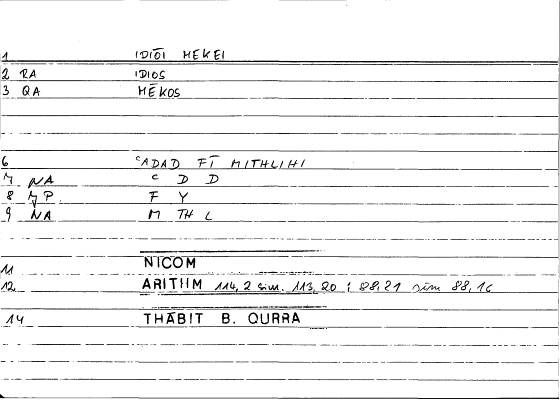 1 IDIŌI MĒKEI
2 RA IDIOS
3 QA MĒKOS
6 ʿADAD FĪ MITHLIHI
7 NA ʿ D D
8 MP F Y
9 NA M TH L
NICOM
11
12 ARITHM 114,2 sim. 113,20 ; 88,21 sim 88,16
14 THĀBIT B. QURRA